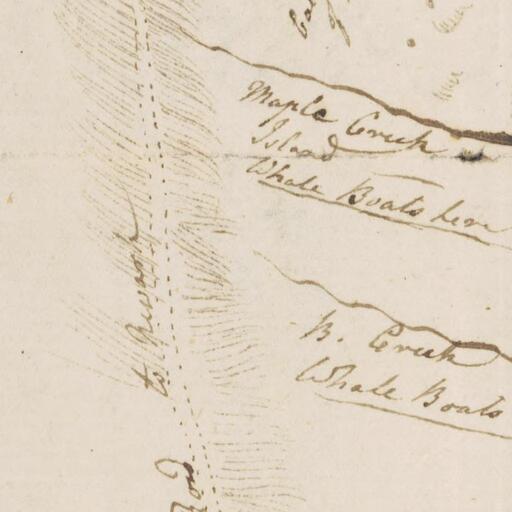 Maple Creek
Island
Whale Boats here
B. Creek
Whale Boats
to Newark